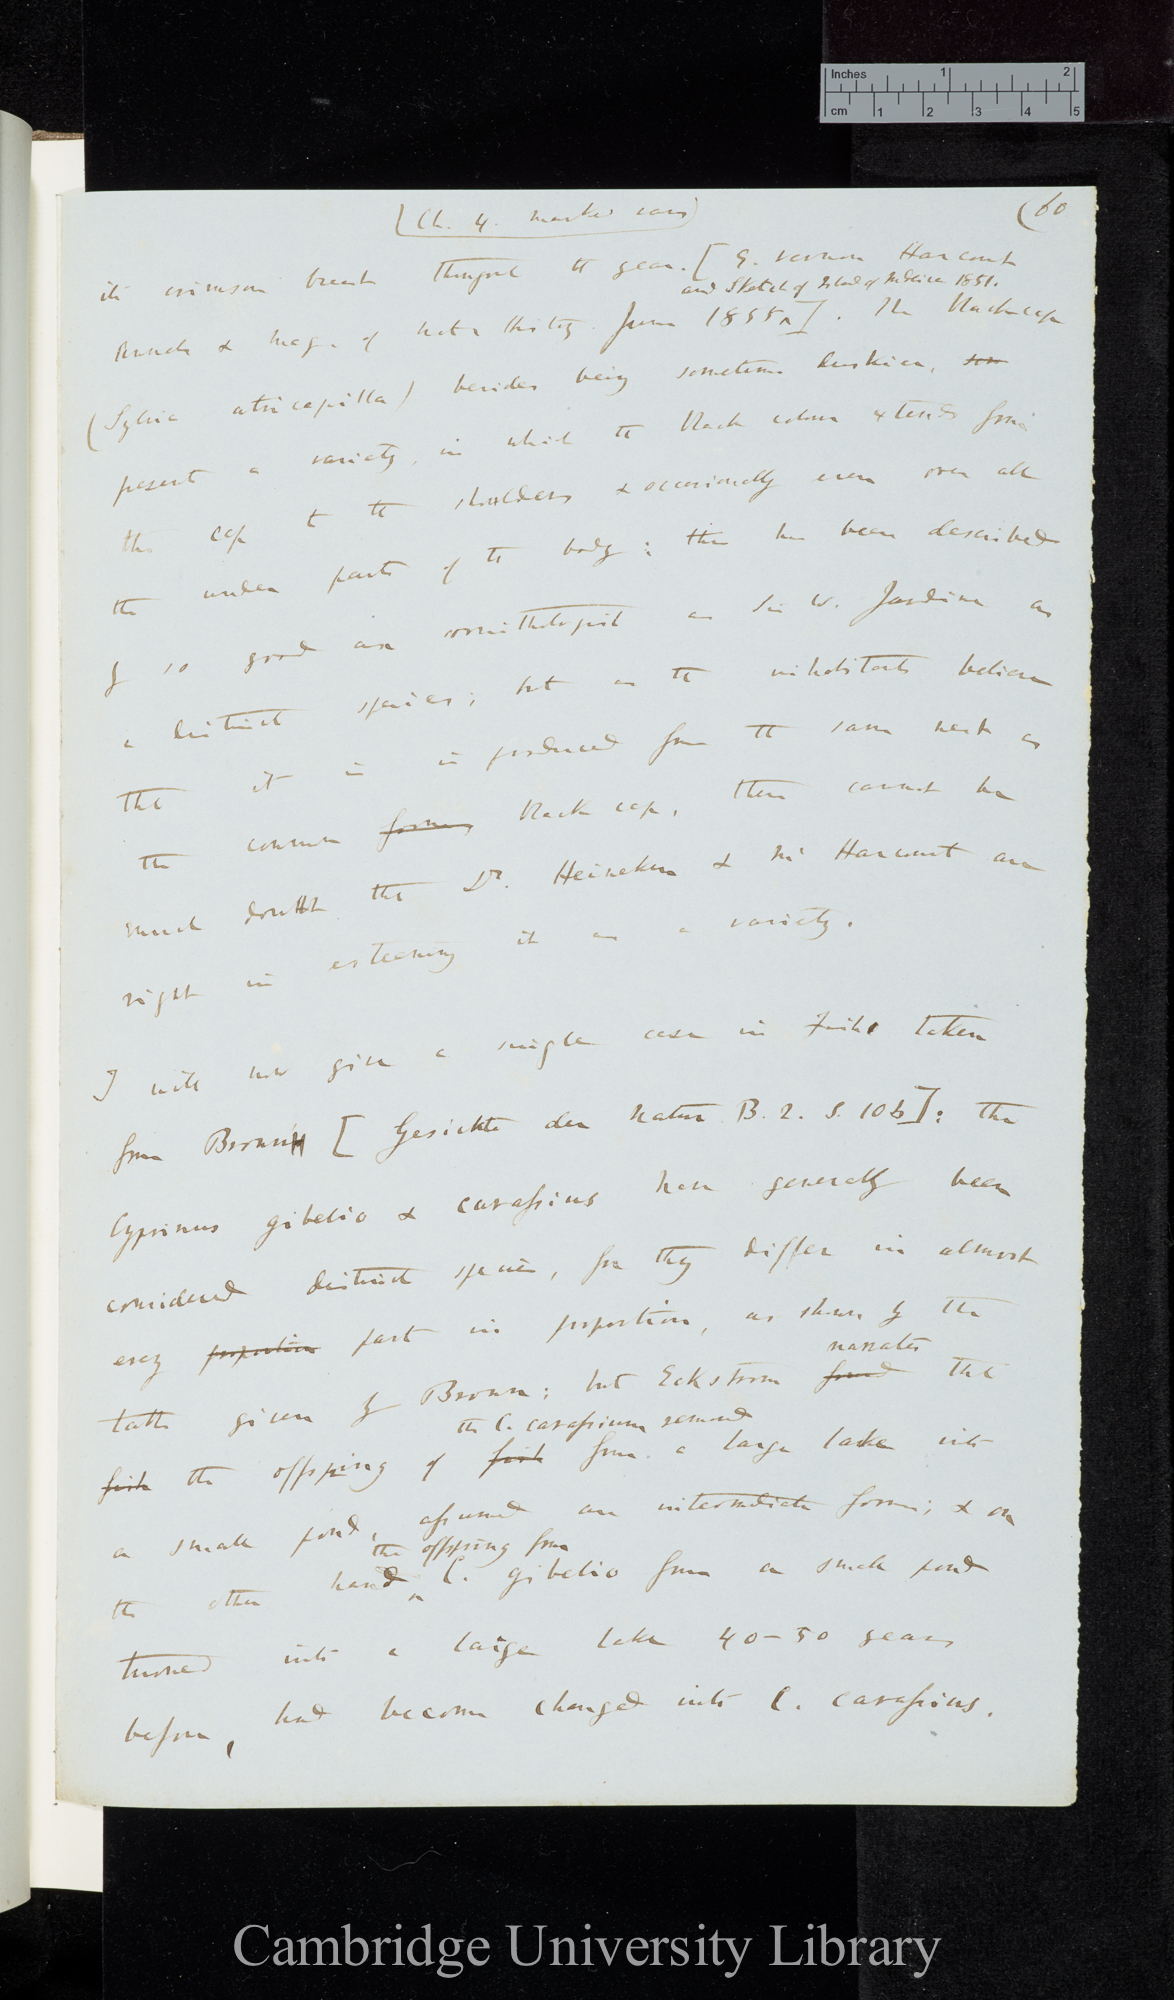 Inches 1 2
cm 1 2 3 4 5
(Ch. 4. marked cases)
(60
its crimson breast throughout the year. [E. Vernon Harcourt
and Sketch of Island of Madeira 1851.
Annals & Mag. of Nat. History. June 1855 ^]. The Black-cap
(Sylvia atricapilla) besides being sometimes duskier,
present a variety, in which the black colour extends from
the cap to the shoulders & occasionally even over all
the under parts of the body: this has been described
by so good an ornithologist as Sir W. Jardine as
a distinct species; but as the inhabitants believe
that it is is produced from the same nest as
the common forms Black cap, there cannot be
much doubt that Dr. Heineken & Mr Harcourt are
right in esteeming it as a variety.
I will now give a single case in Fish taken
from Bronn [Gesichte der Natur B. 2. S. 106]: the
Cyprinus gibelio & carassius have generally been
considered distinct species, for they differ in almost
every proportion part in proportion, as shown by the
narrates
table given by Bronn; but Eckstrom found that
the C. carassius removed
fish the offspring of fish from a large lake into
a small pond, assumed an intermediate form; & on
the offspring from
the other hand, ^ C. gibelio from a small pond
turned into a large lake 40-50 years
before, had become changed into C. carassius.
Cambridge University Library